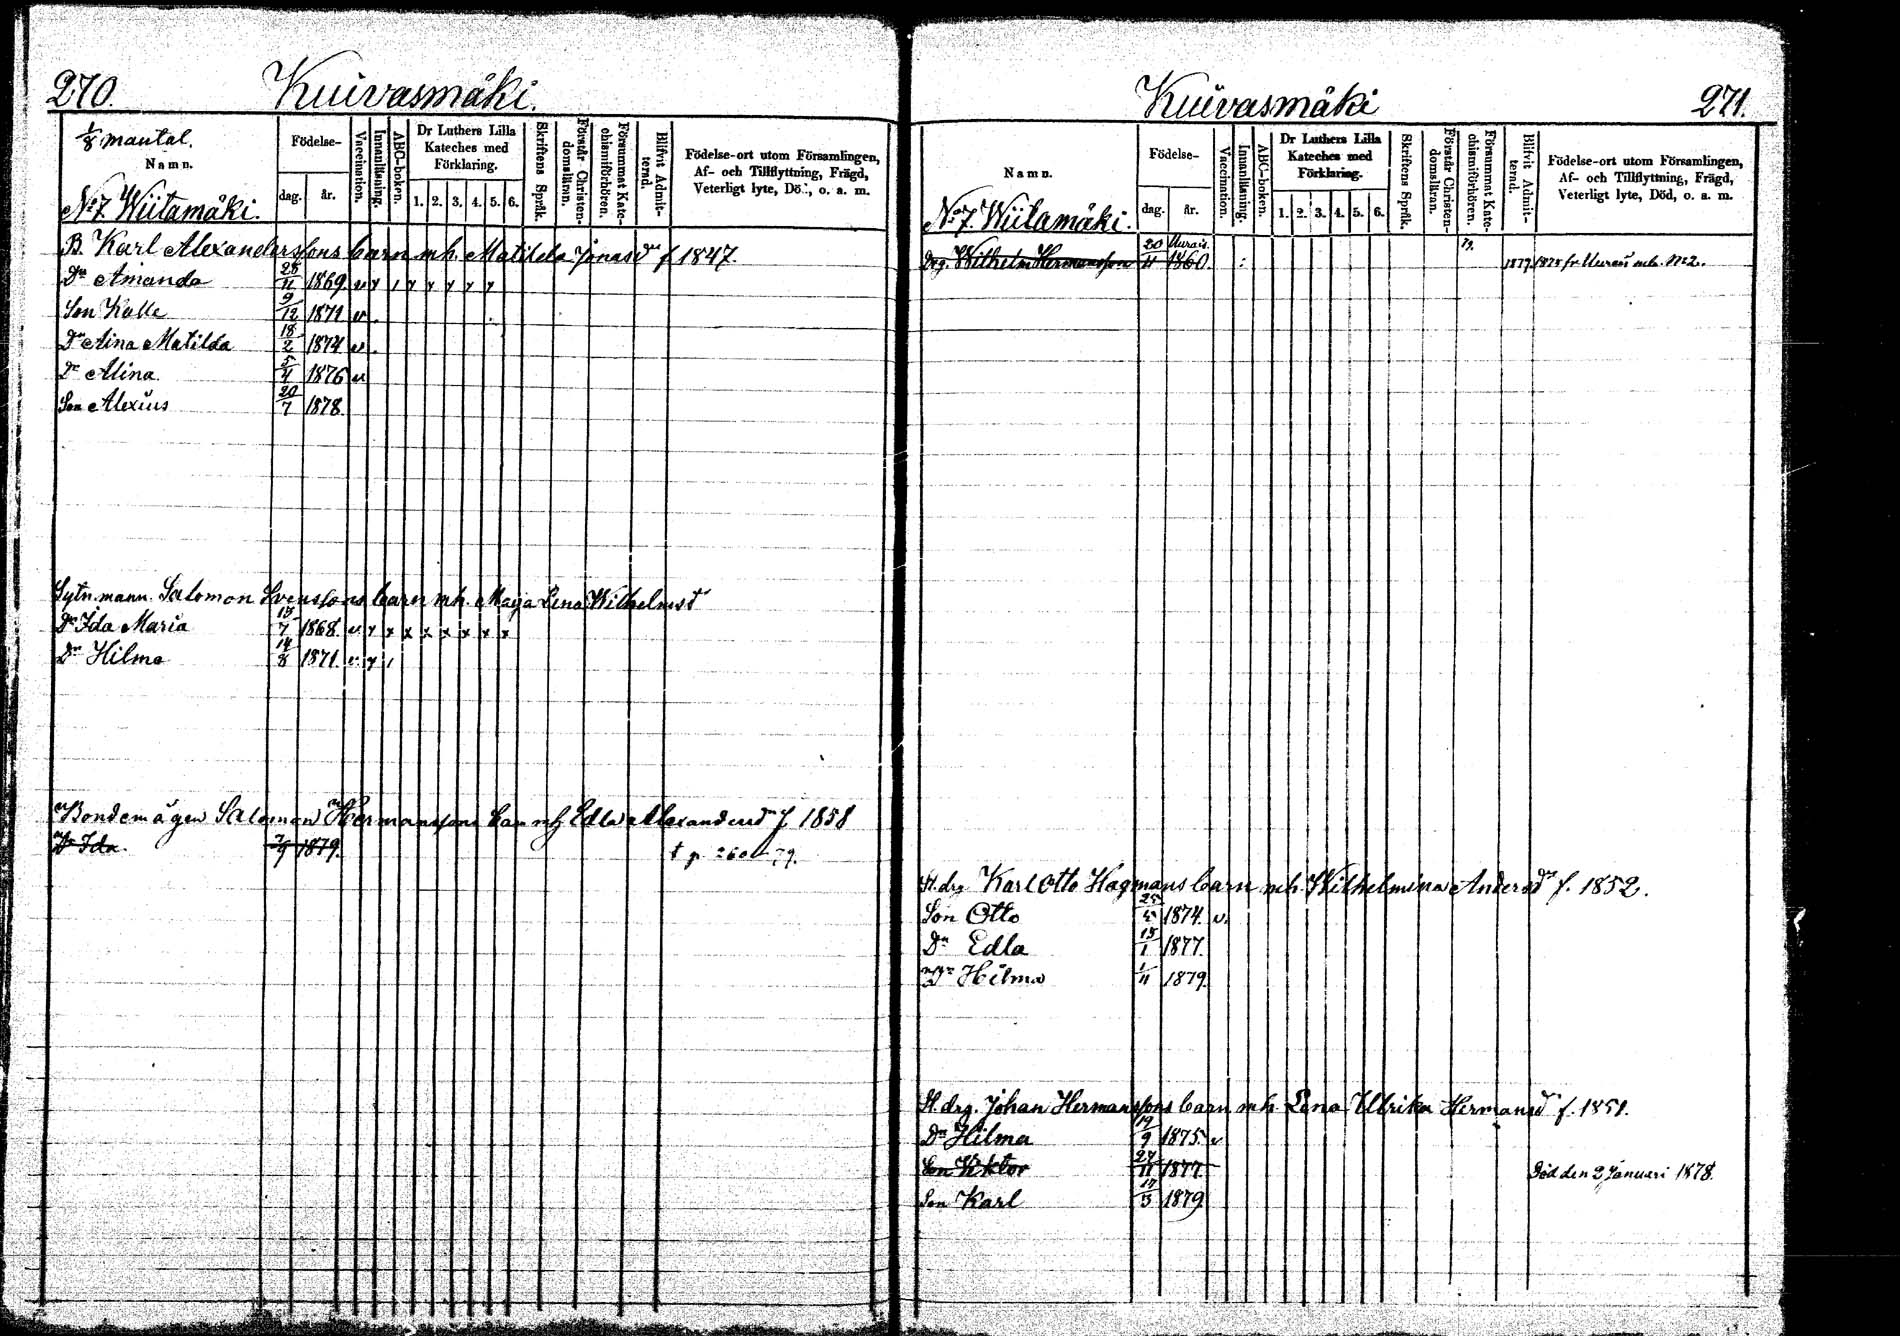 270.
Kuivasmäki.
1/8 mantal.
Namn.
Födelse-
dag.
år.
Vaccination.
Innanläsning.
ABC-boken.
Dr Luthers Lilla
Kateches med
Förklaring.
1. 2. 3. 4. 5. 6.
Skriftens Språk.
Förstår Christen-
domsläran.
Försummat Kate-
chismiförhören.
Blifvit Admit-
terad.
Födelse-ort utom Församlingen,
Af- och Tillflyttning, Frägd,
Veterligt lyte, Död, o. a. m.
No 7. Wiitamäki.
B. Karl Alexanderssons barn mh. Matilda Jonasdr f 1847.
Dr Amanda 28/11 1869. v x / x x x x x
Son Kalle 9/12 1871 v
Dr Aina Matilda 18/2 1874 v
Dr Alina 5/4 1876 v
Son Alexius 20/7 1878
Sytn.mann. Salomon Svenssons barn mh. Maja Lena Wilhelmsd
Dr Ida Maria 15/7 1868. v x x x x x x x x
Dr Hilma 14/8 1871. v x /
Bondemågen Salomon Hermanssons barn mh Edla Alexandersd f. 1858
Dr Ida. 7/9 1879. t p. 260 - 79.
Kuivasmäki
271.
Namn.
Födelse-
dag.
år.
Vaccination.
Innanläsning.
ABC-boken.
Dr Luthers Lilla
Kateches med
Förklaring.
1. 2. 3. 4. 5. 6.
Skriftens Språk.
Förstår Christen-
domsläran.
Försummat Kate-
chismiförhören.
Blifvit Admit-
terad.
Födelse-ort utom Församlingen,
Af- och Tillflyttning, Frägd,
Veterligt lyte, Död, o. a. m.
No 7. Wiitamäki.
Drg. Wilhelm Hermansson 20/11 Uurais. 1860. 1877. 1878 fr. Uurais
St. drg Karl Otto Hagmans barn mh. Wilhelmina Andersdr f. 1852.
Son Otto 25/5 1874. v.
Dr Edla 15/1 1877.
Dr Hilma 1/11 1879.
St. drg. Johan Hermanssons barn mh. Lena Ulrika Hermansd f. 1851.
Dr Hilma 19/9 1875 v
Son Viktor 27/11 1877 Död den 2 Januari 1878.
Son Karl 17/5 1879